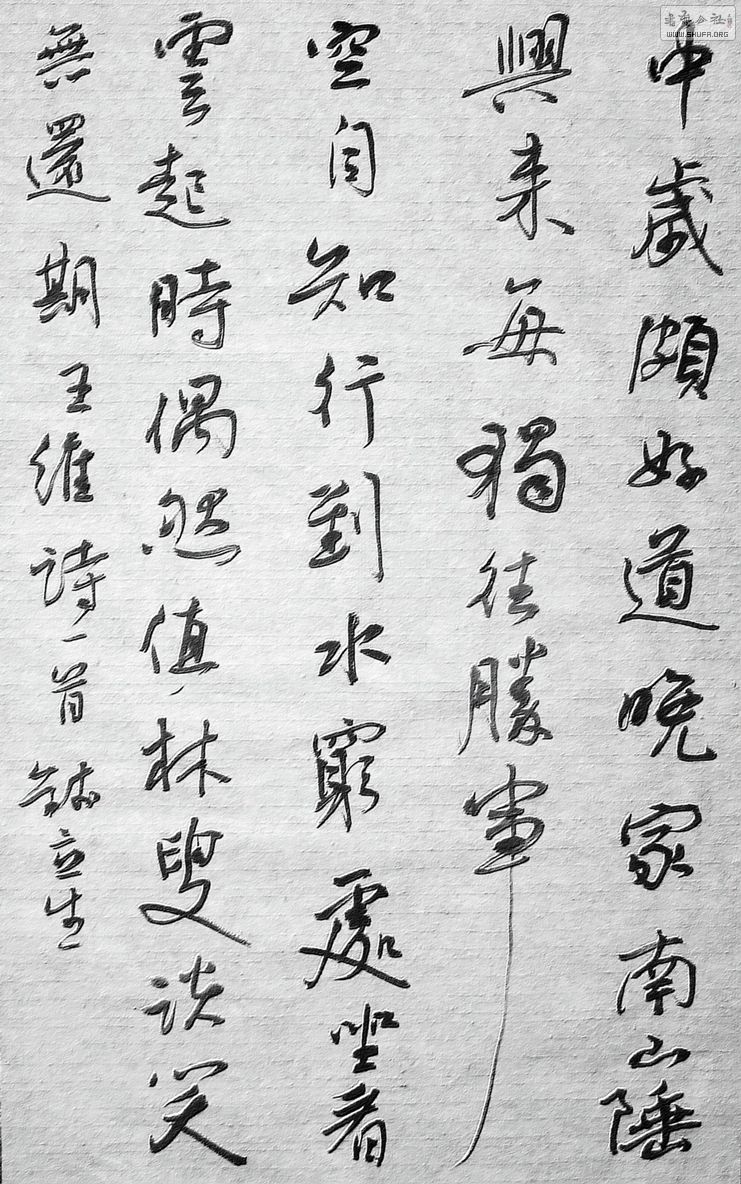 中歲頗好道晚家南山陲
興来每獨往勝事
空自知行到水窮處坐看
雲起時偶然值林叟談笑
無還期王維詩一首
书法公社
WWW.SHUFA.ORG